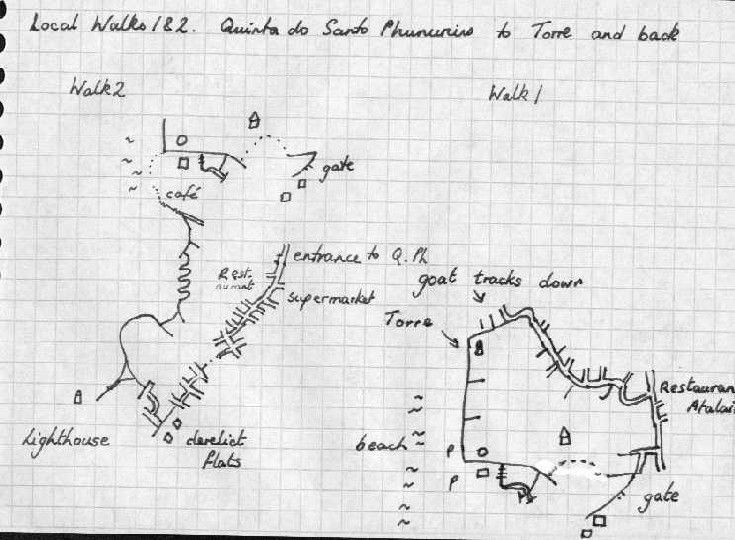 Local Walks 1&2. Quinta do Santo Phunurins to Torre and back
Walk 2
Walk 1
gate
café
entrance to Q.Ph
Rest.
supermarket
goat tracks down
Torre
Restauran
Atalai
beach
P
P
Lighthouse
derelict
flats
gate